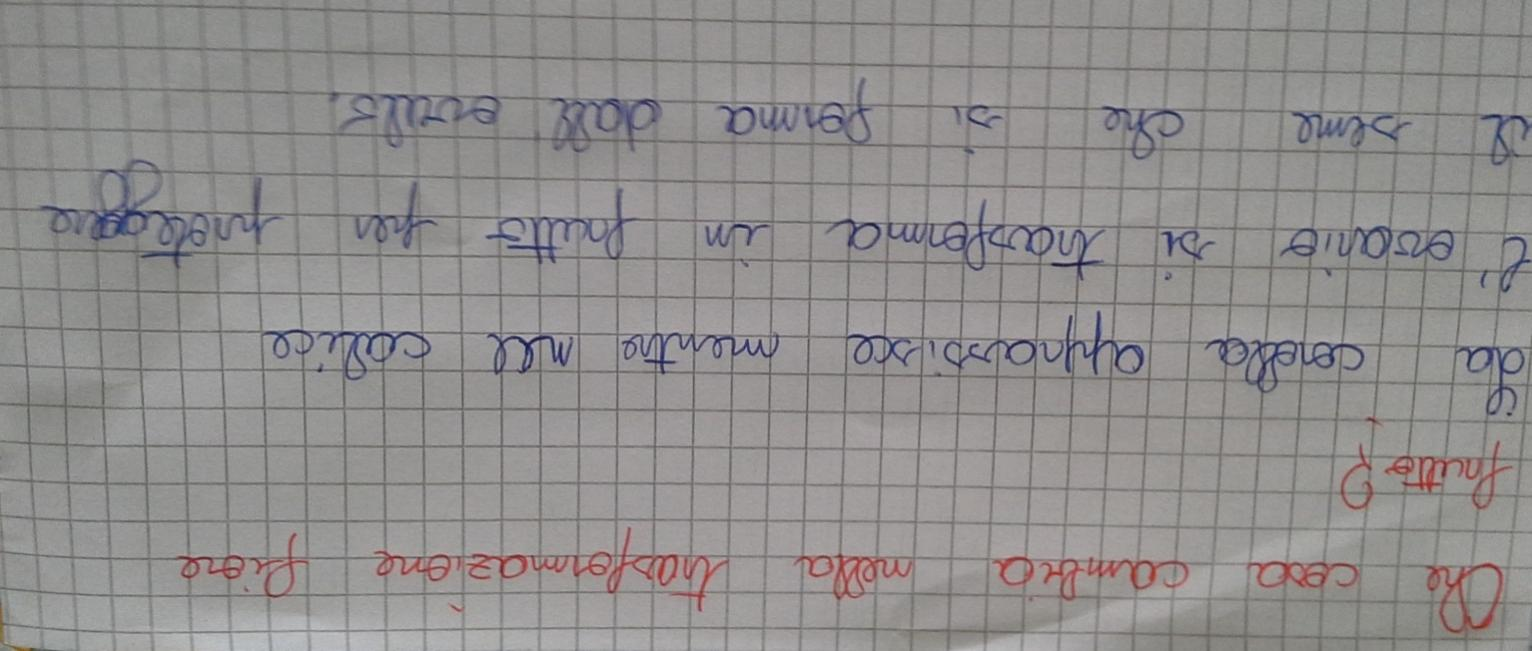 Che cosa cambia nella trasformazione fiore
frutto?
da corolla appassisce mentre nel calice
l'ovario si trasforma in frutto per proteggere
il seme che si forma dall'ovulo.